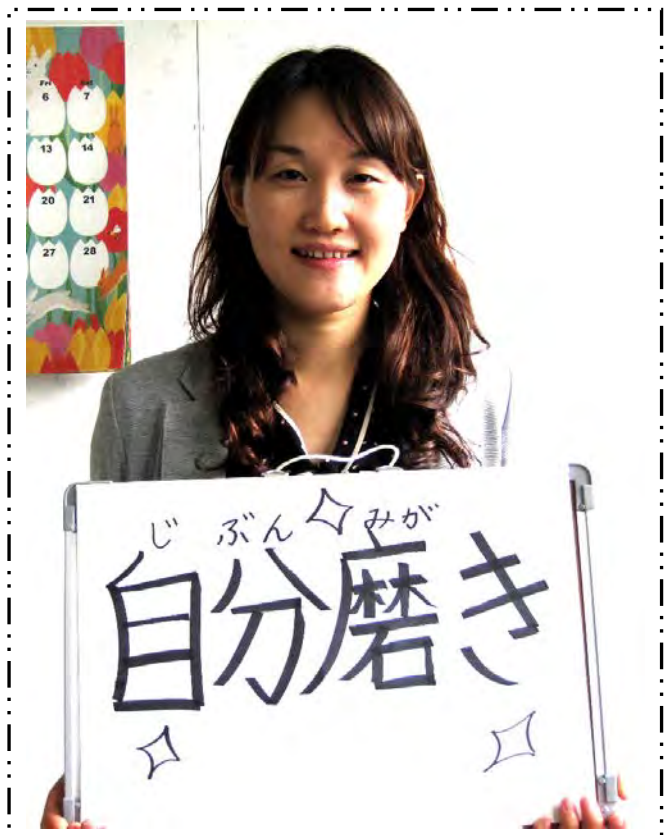 Fri Sat
6 7
13 14
20 21
27 28
じ ぶん みが
自分磨き